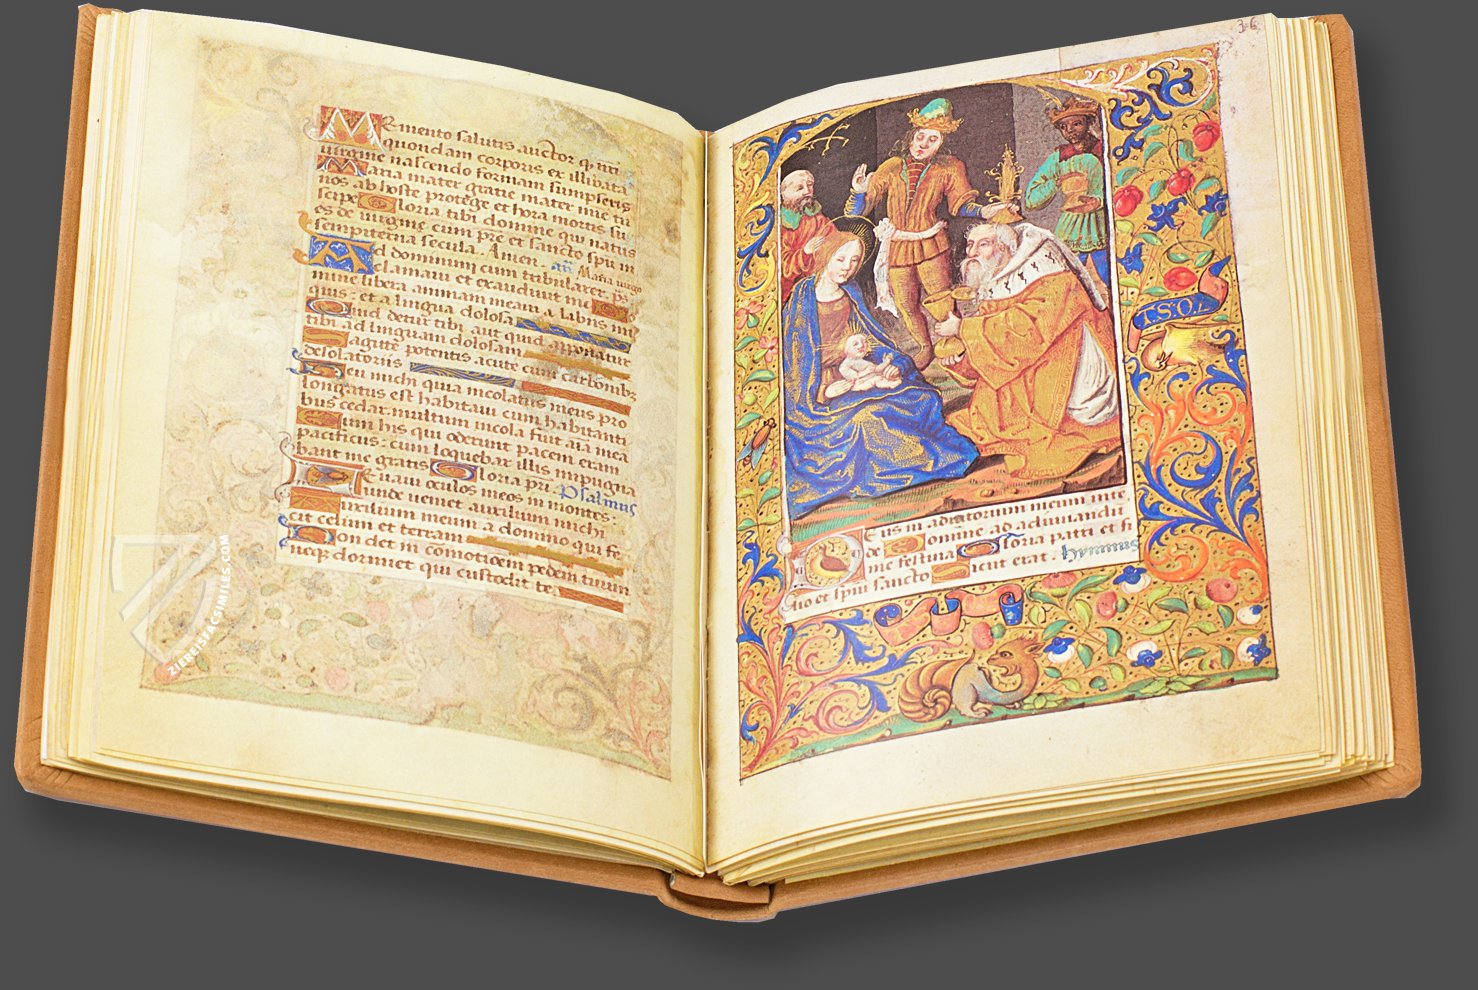 Memento salutis auctor q̄ nr̄i
quondam corporis ex illibata
virgine nascendo formam sumpseris
Maria mater gratie mater mie tu
nos ab hoste protege et hora mortis su
scipe Gloria tibi domine qui natus
es de virgine cum pr̄e et sancto spu in
sempiterna secula. Amen. an̄ Maria virgo
Ad dominum cum tribularer. ps̄
clamaui et exaudiuit me
mine libera animam meam a labiis ini
quis: et a lingua dolosa
Quid detur tibi aut quid apponatur
tibi ad linguam dolosam
agitte potentis acute cum carbonibz
desolatoriis
Heu michi quia incolatus meus pro
longatus est habitaui cum habitanti
bus cedar. multum incola fuit aīa mea
um his qui oderunt pacem eram
pacificus: cum loquebar illis impugna
bant me gratis Gloria pri. Psalmus
Leuaui oculos meos in montes:
unde veniet auxilium michi
auxilium meum a domino qui fe
cit celum et terram
Non det in cōmotionem pedem tuum
neqz dormiet qui custodit te
36
T.S.O.
Deus in adiutorium meum inte
de Domine ad adiuuandū
me festina Gloria patri et fi
lio et spiu sancto Sicut erat. hymnus
ZIEREISFACSIMILES.COM